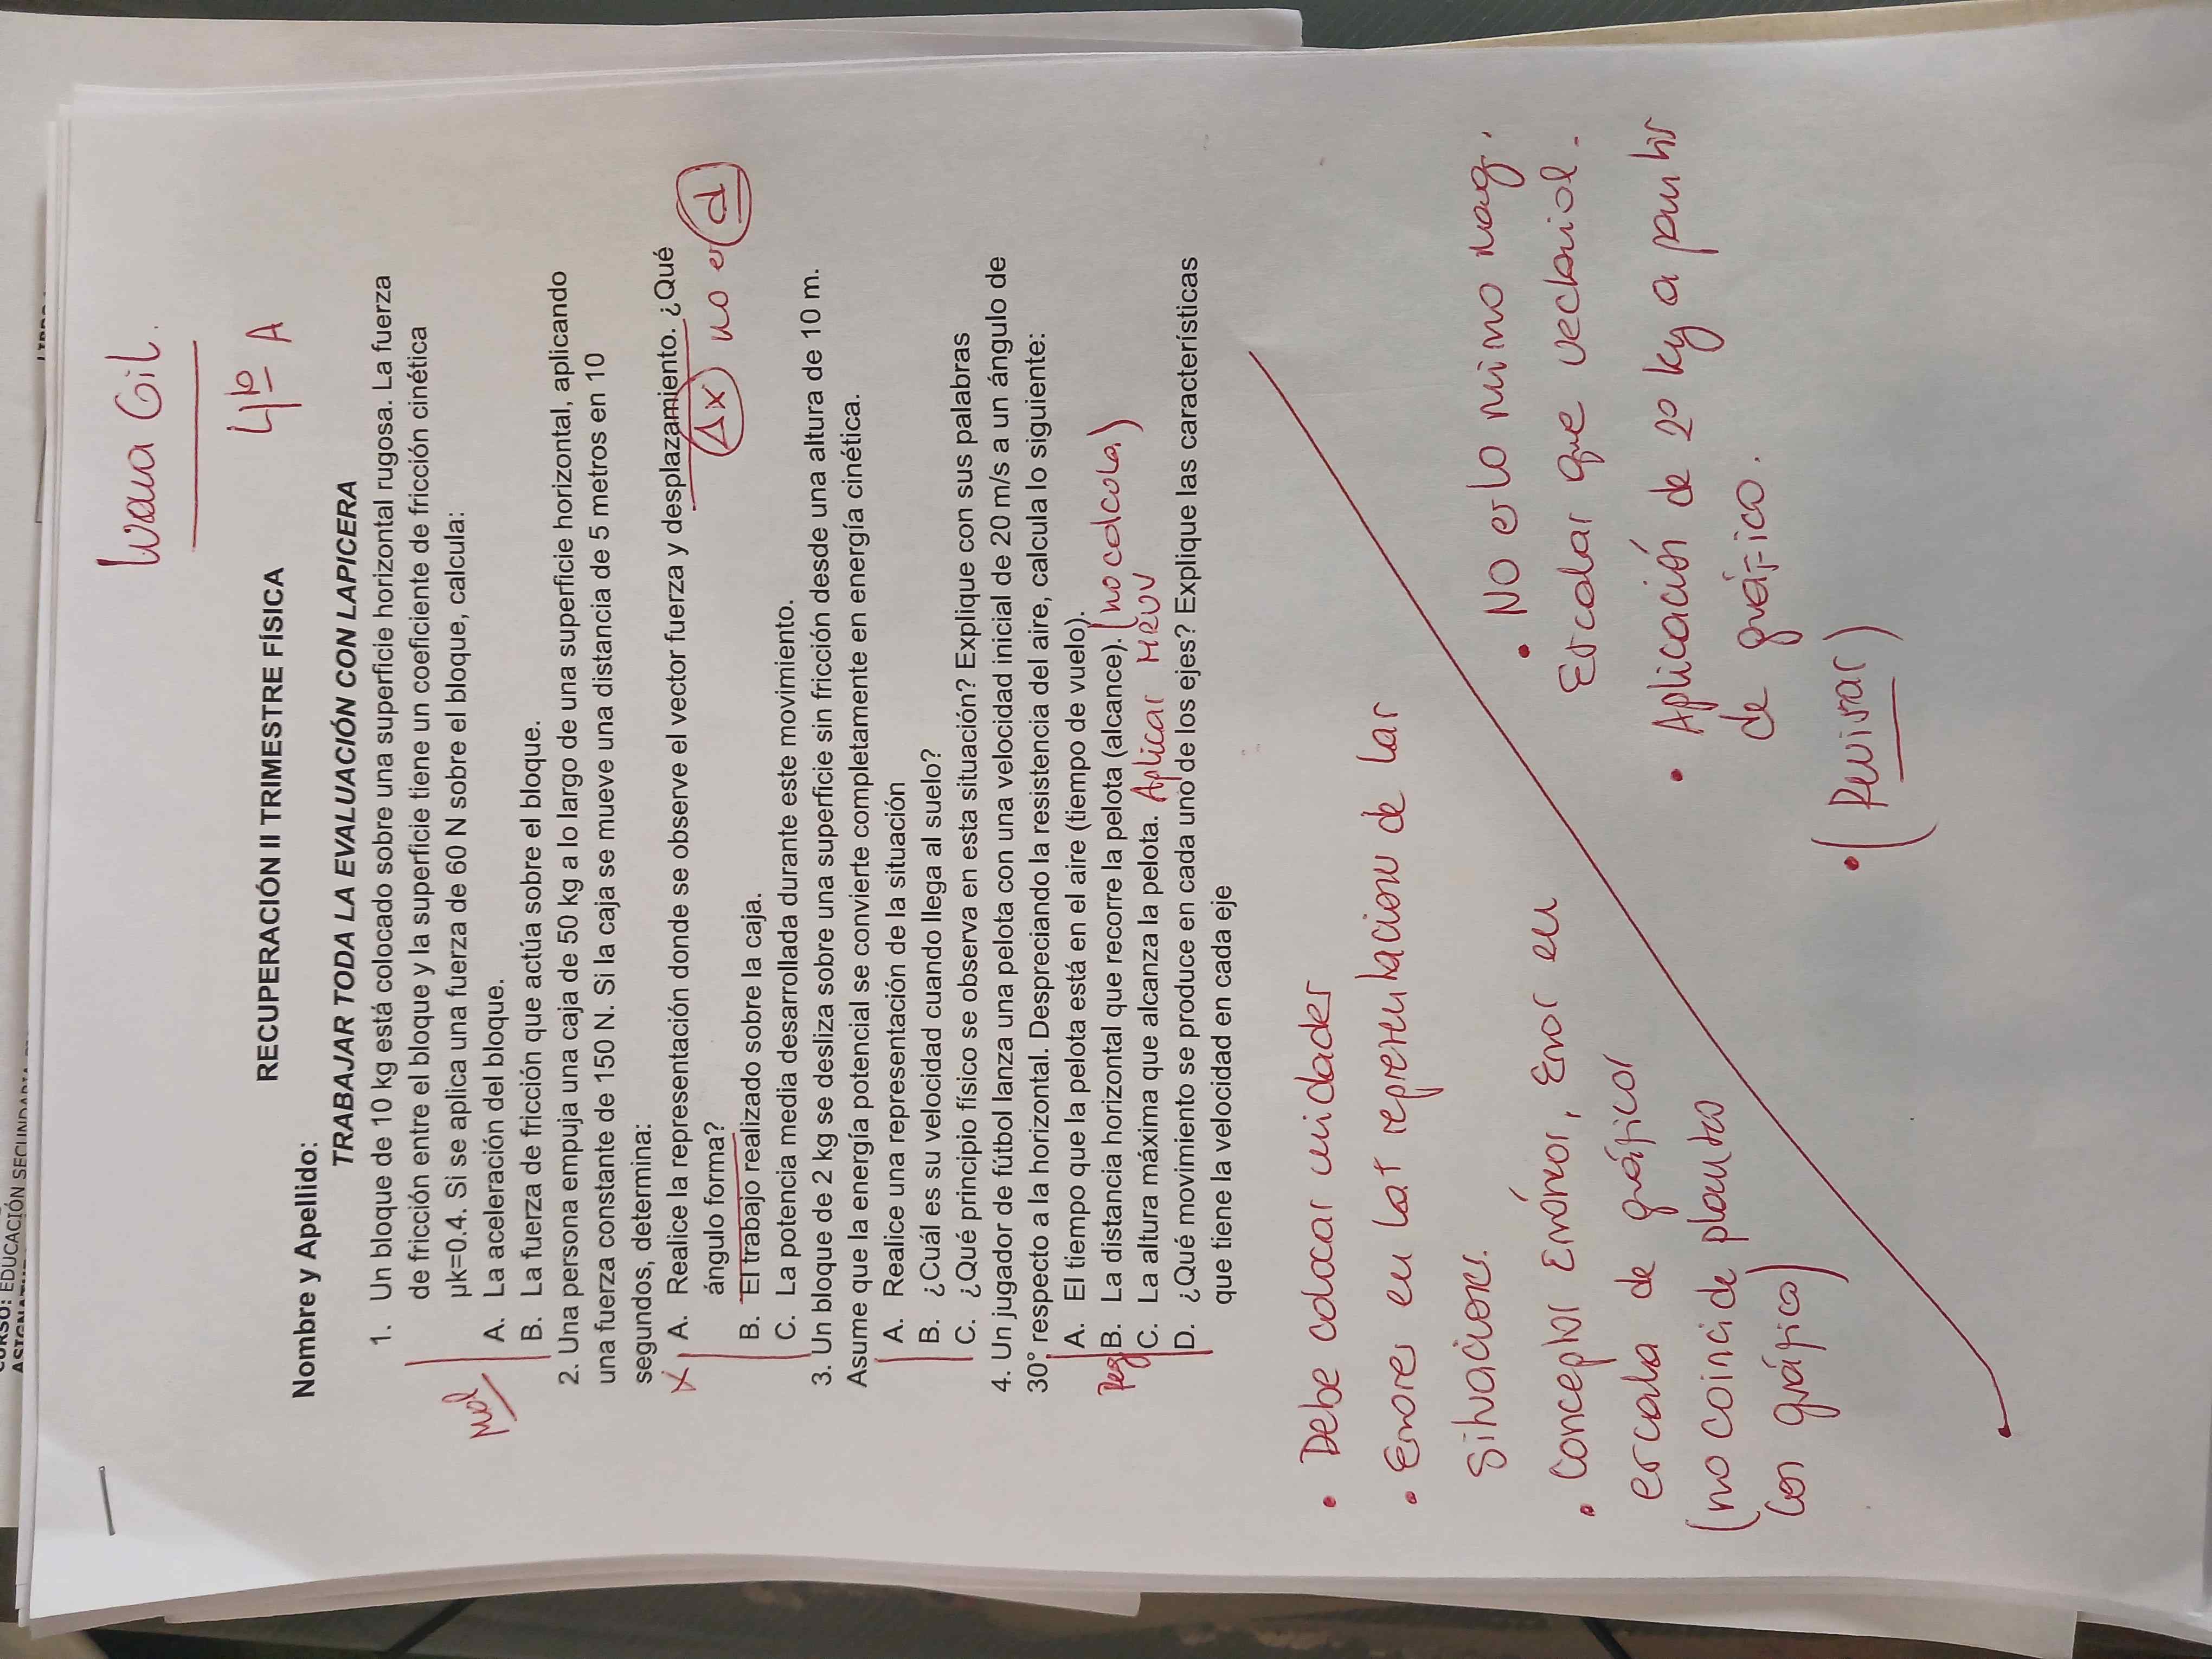 CURSO: EDUCACIÓN SECUNDARIA
Luana Gil.
4to A
RECUPERACIÓN II TRIMESTRE FÍSICA
Nombre y Apellido:
TRABAJAR TODA LA EVALUACIÓN CON LAPICERA
1. Un bloque de 10 kg está colocado sobre una superficie horizontal rugosa. La fuerza
de fricción entre el bloque y la superficie tiene un coeficiente de fricción cinética
μk=0.4. Si se aplica una fuerza de 60 N sobre el bloque, calcula:
Mal
A. La aceleración del bloque.
B. La fuerza de fricción que actúa sobre el bloque.
2. Una persona empuja una caja de 50 kg a lo largo de una superficie horizontal, aplicando
una fuerza constante de 150 N. Si la caja se mueve una distancia de 5 metros en 10
segundos, determina:
X A. Realice la representación donde se observe el vector fuerza y desplazamiento. ¿Qué
ángulo forma?
Δx no es d
B. El trabajo realizado sobre la caja.
C. La potencia media desarrollada durante este movimiento.
3. Un bloque de 2 kg se desliza sobre una superficie sin fricción desde una altura de 10 m.
Asume que la energía potencial se convierte completamente en energía cinética.
A. Realice una representación de la situación
B. ¿Cuál es su velocidad cuando llega al suelo?
C. ¿Qué principio físico se observa en esta situación? Explique con sus palabras
4. Un jugador de fútbol lanza una pelota con una velocidad inicial de 20 m/s a un ángulo de
30° respecto a la horizontal. Despreciando la resistencia del aire, calcula lo siguiente:
A. El tiempo que la pelota está en el aire (tiempo de vuelo).
Reg B. La distancia horizontal que recorre la pelota (alcance). (no calcula)
C. La altura máxima que alcanza la pelota. Aplicar MRUV
D. ¿Qué movimiento se produce en cada uno de los ejes? Explique las características
que tiene la velocidad en cada eje
• Debe colocar unidades
• Errores en las representaciones de las
situaciones.
• Conceptos Erróneos, Error en
escala de gráficos
(no coincide planteo
con gráfico)
• NO es lo mismo mag.
Escalar que vectorial.
• Aplicación de 2º ley a partir
de gráfico.
• (Revisar)